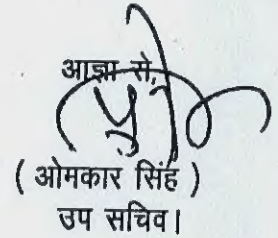 आज्ञा से,
( ओमकार सिंह )
उप सचिव।